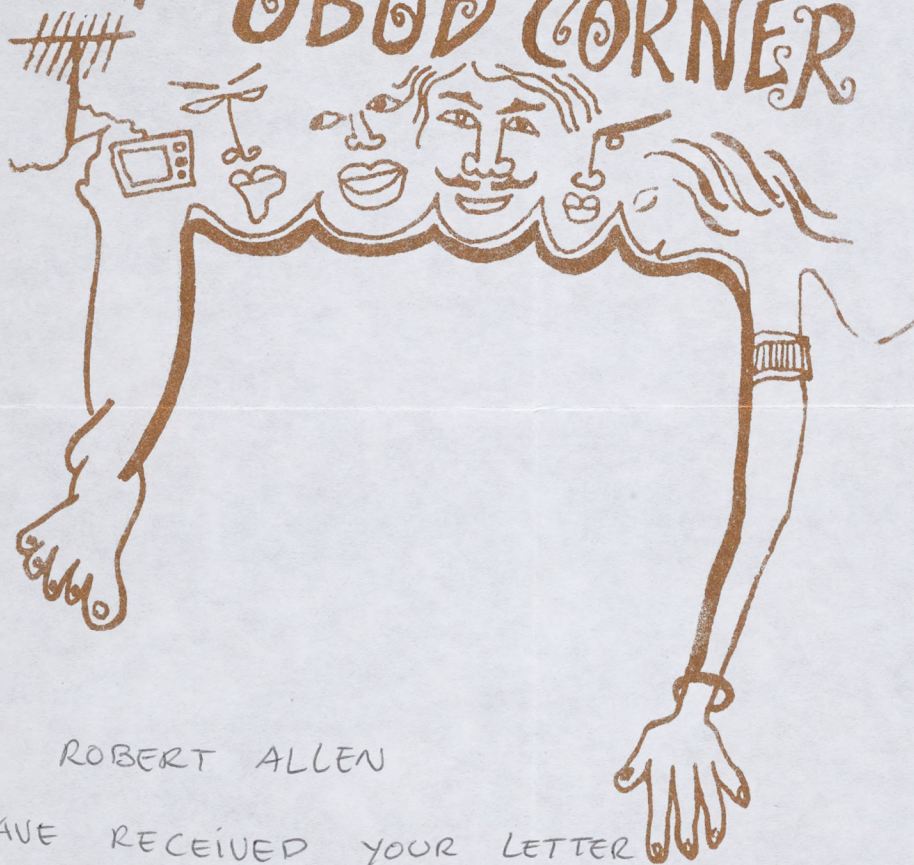 CORNER
ROBERT ALLEN
AVE RECEIVED YOUR LETTER